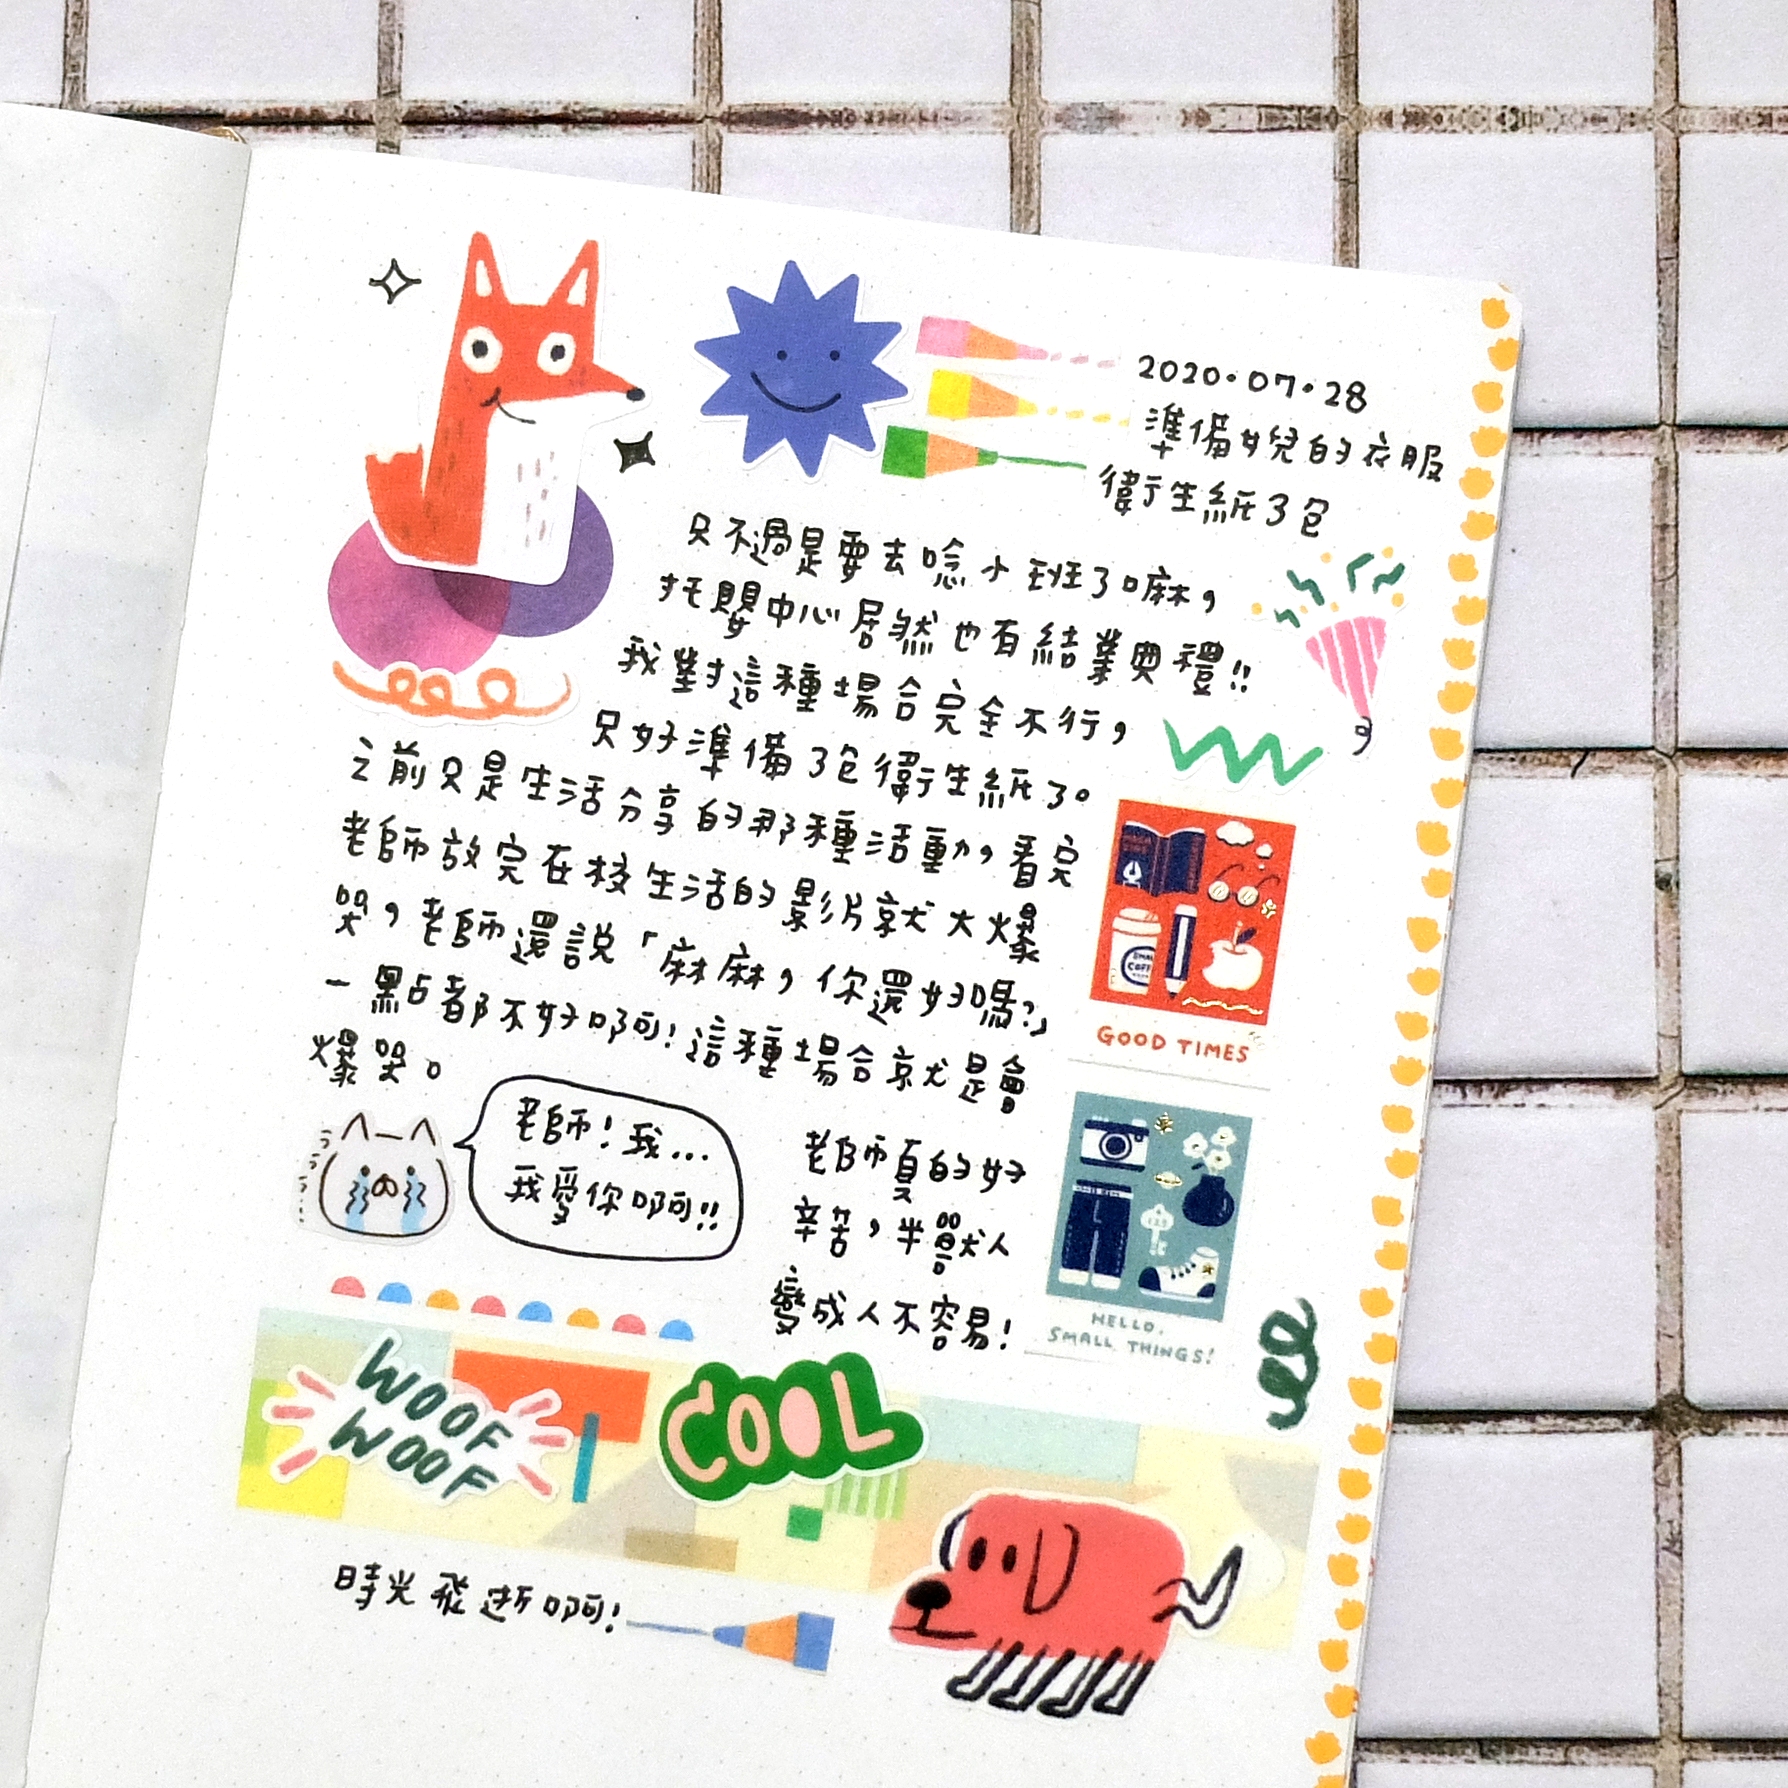 2020.07.28
準備女兒的衣服
衛生紙3包
只不過是要去唸小班了嘛，
托嬰中心居然也有結業典禮!!
我對這種場合完全不行，
只好準備3包衛生紙了。
之前只是生活分享的那種活動，看完
老師放完在校生活的影片就大爆
哭，老師還說「麻麻，你還好嗎?」
一點都不好啊!這種場合就是會
爆哭。
老師!我...
我愛你啊!!
老師真的好
辛苦，半獸人
變成人不容易!
GOOD TIMES
HELLO,
SMALL THINGS!
WOOF
WOOF
COOL
時光飛逝啊!